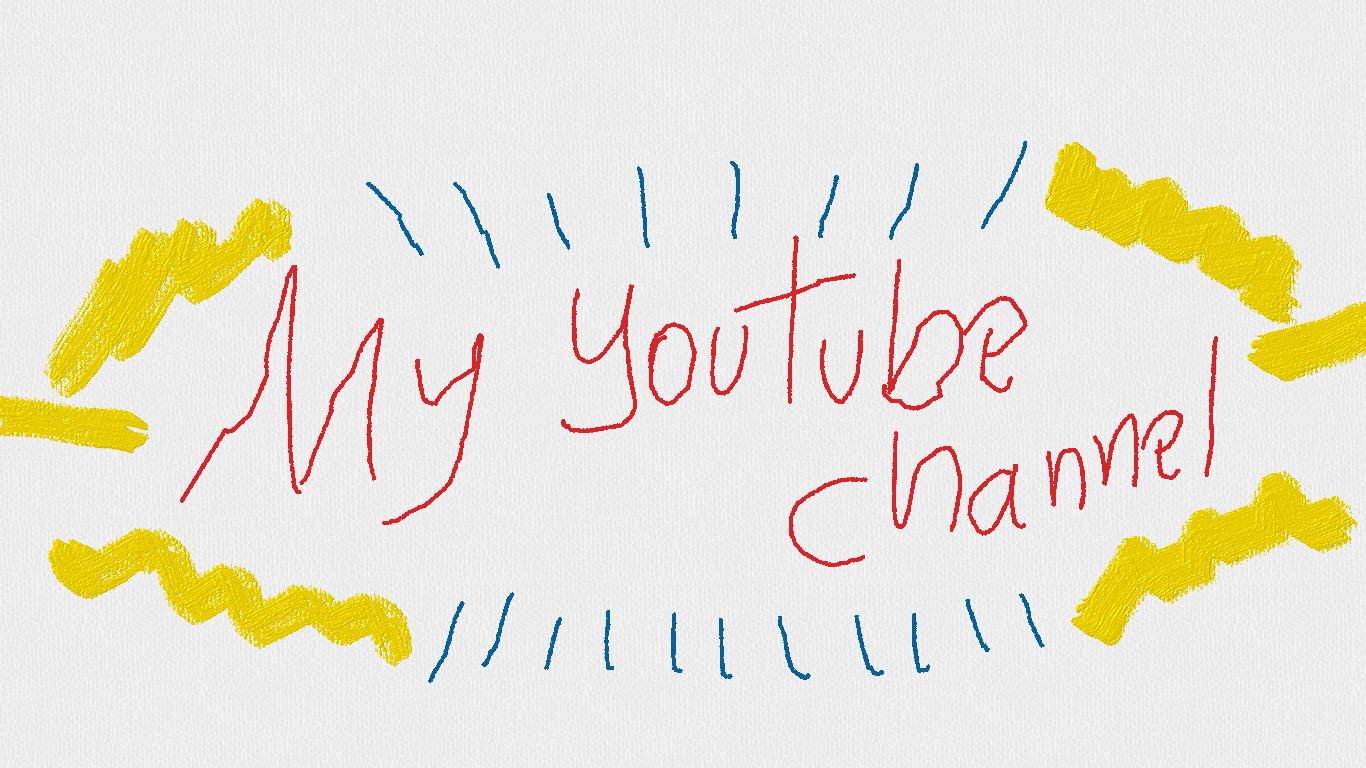 My youtube
channel